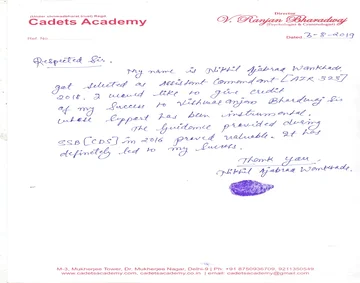 Cadets Academy
Director
V. Ranjan Bharadwaj
Ref. No.
Dated 3-8-2019
Respected Sir.
My name is Nikhil Ajabrao Wankhade
got selected as Assistant Commandant [AIR 325]
2018. I would like to give credit
of my success to Bhardwaj Sir
whose support has been instrumental.
The Guidence provided during
SSB [CDS] in 2016 proved valuable. It has
definitely led to my success.
Thank You
Nikhil Ajabrao Wankhade.
M-3, Mukherjee Tower, Dr. Mukherjee Nagar, Delhi-9 | Ph: +91
www.cadetsacademy.com | www.cadetsacademy.co.in | email: cadetsacademy@gmail.com